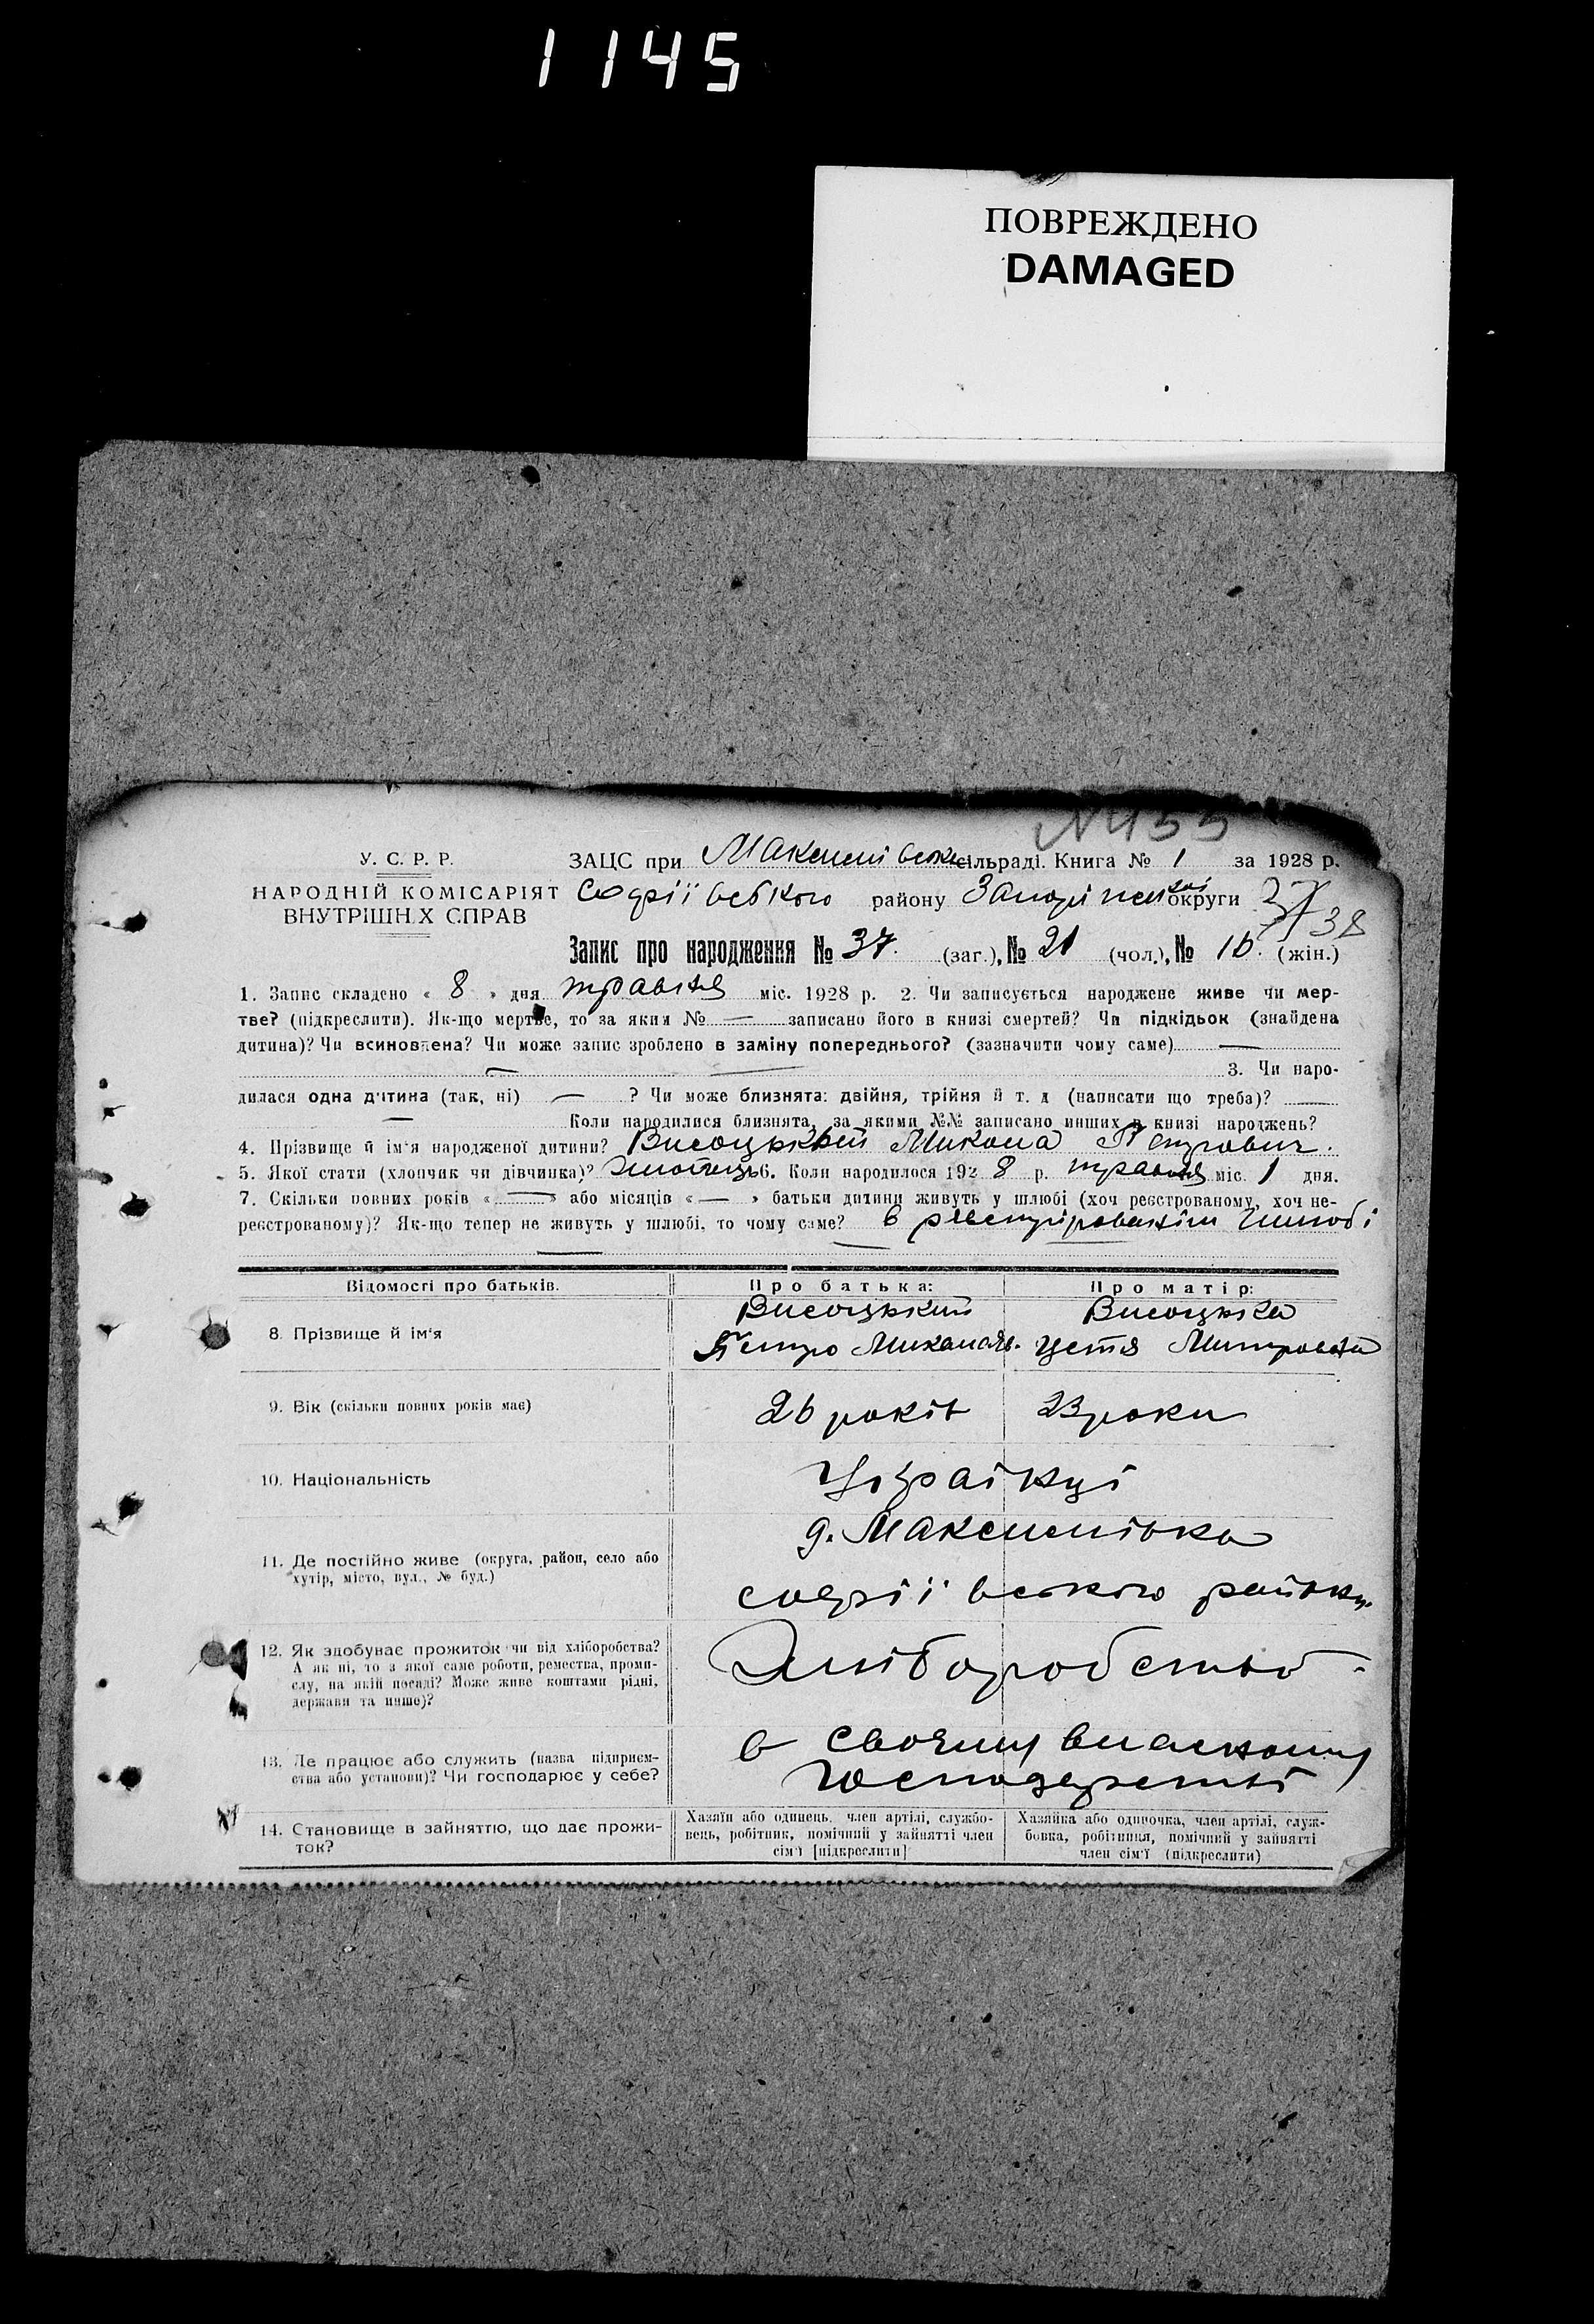 1145
ПОВРЕЖДЕНО
DAMAGED
№ 455
У. С. Р. Р.
ЗАЦС при Максимівськ. сільраді. Книга № 1 за 1928 р.
НАРОДНІЙ КОМІСАРІЯТ
ВНУТРІШНІХ СПРАВ
Софіївського району Запоріжської округи 37 38
Запис про народження № 37. (заг.), № 21 (чол.), № 16. (жін.)
1. Запис складено « 8 » дня травня міс. 1928 р. 2. Чи записується народжене живе чи мер-
тве? (підкреслити). Як-що мертве, то за яким № — записано його в книзі смертей? Чи підкідьок (знайдена
дитина)? Чи всиновлена? Чи може запис зроблено в заміну попереднього? (зазначити чому саме) —
— 3. Чи наро-
дилася одна дитина (так, ні) — ? Чи може близнята: двійня, трійня й т. д (написати що треба)?
— Коли народилися близнята, за якими №№ записано инших в книзі народжень?
4. Прізвище й ім'я народженої дитини? Висоцький Микола Петрович.
5. Якої стати (хлопчик чи дівчинка)? хлопець 6. Коли народилося 192 8 р. травня міс. 1 дня.
7. Скільки повних років « — » або місяців « — » батьки дитини живуть у шлюбі (хоч реєстрованому, хоч не-
реєстрованому)? Як-що тепер не живуть у шлюбі, то чому саме? в
шлюбі
Відомості про батьків. Про батька: Про матір:
8. Прізвище й ім'я
Висоцький Висоцька
Петро Миколаєв. Устя Митровна
9. Вік (скільки повних років має) 26 років 23 роки
10. Національність Українці
11. Де постійно живе (округа, район, село або
хутір, місто, вул., № буд.)
д. Максимівка
Софіївського району
12. Як здобуває прожиток чи від хліборобства?
А як ні, то з якої саме роботи, ремества, проми-
слу, на якій посаді? Може живе коштами рідні,
держави та инше)?
Хліборобство
13. Де працює або служить (назва підприєм-
ства або установи)? Чи господарює у себе?
в своєму власному
господарстві
14. Становище в зайняттю, що дає прожи-
ток?
Хазяїн або одинець, член артілі, службо-
вець, робітник, помічний у зайнятті член
сім'ї [підкреслити]
Хазяйка або одиночка, член артілі, служ-
бовка, робітниця, помічний у зайнятті
член сім'ї (підкреслити)